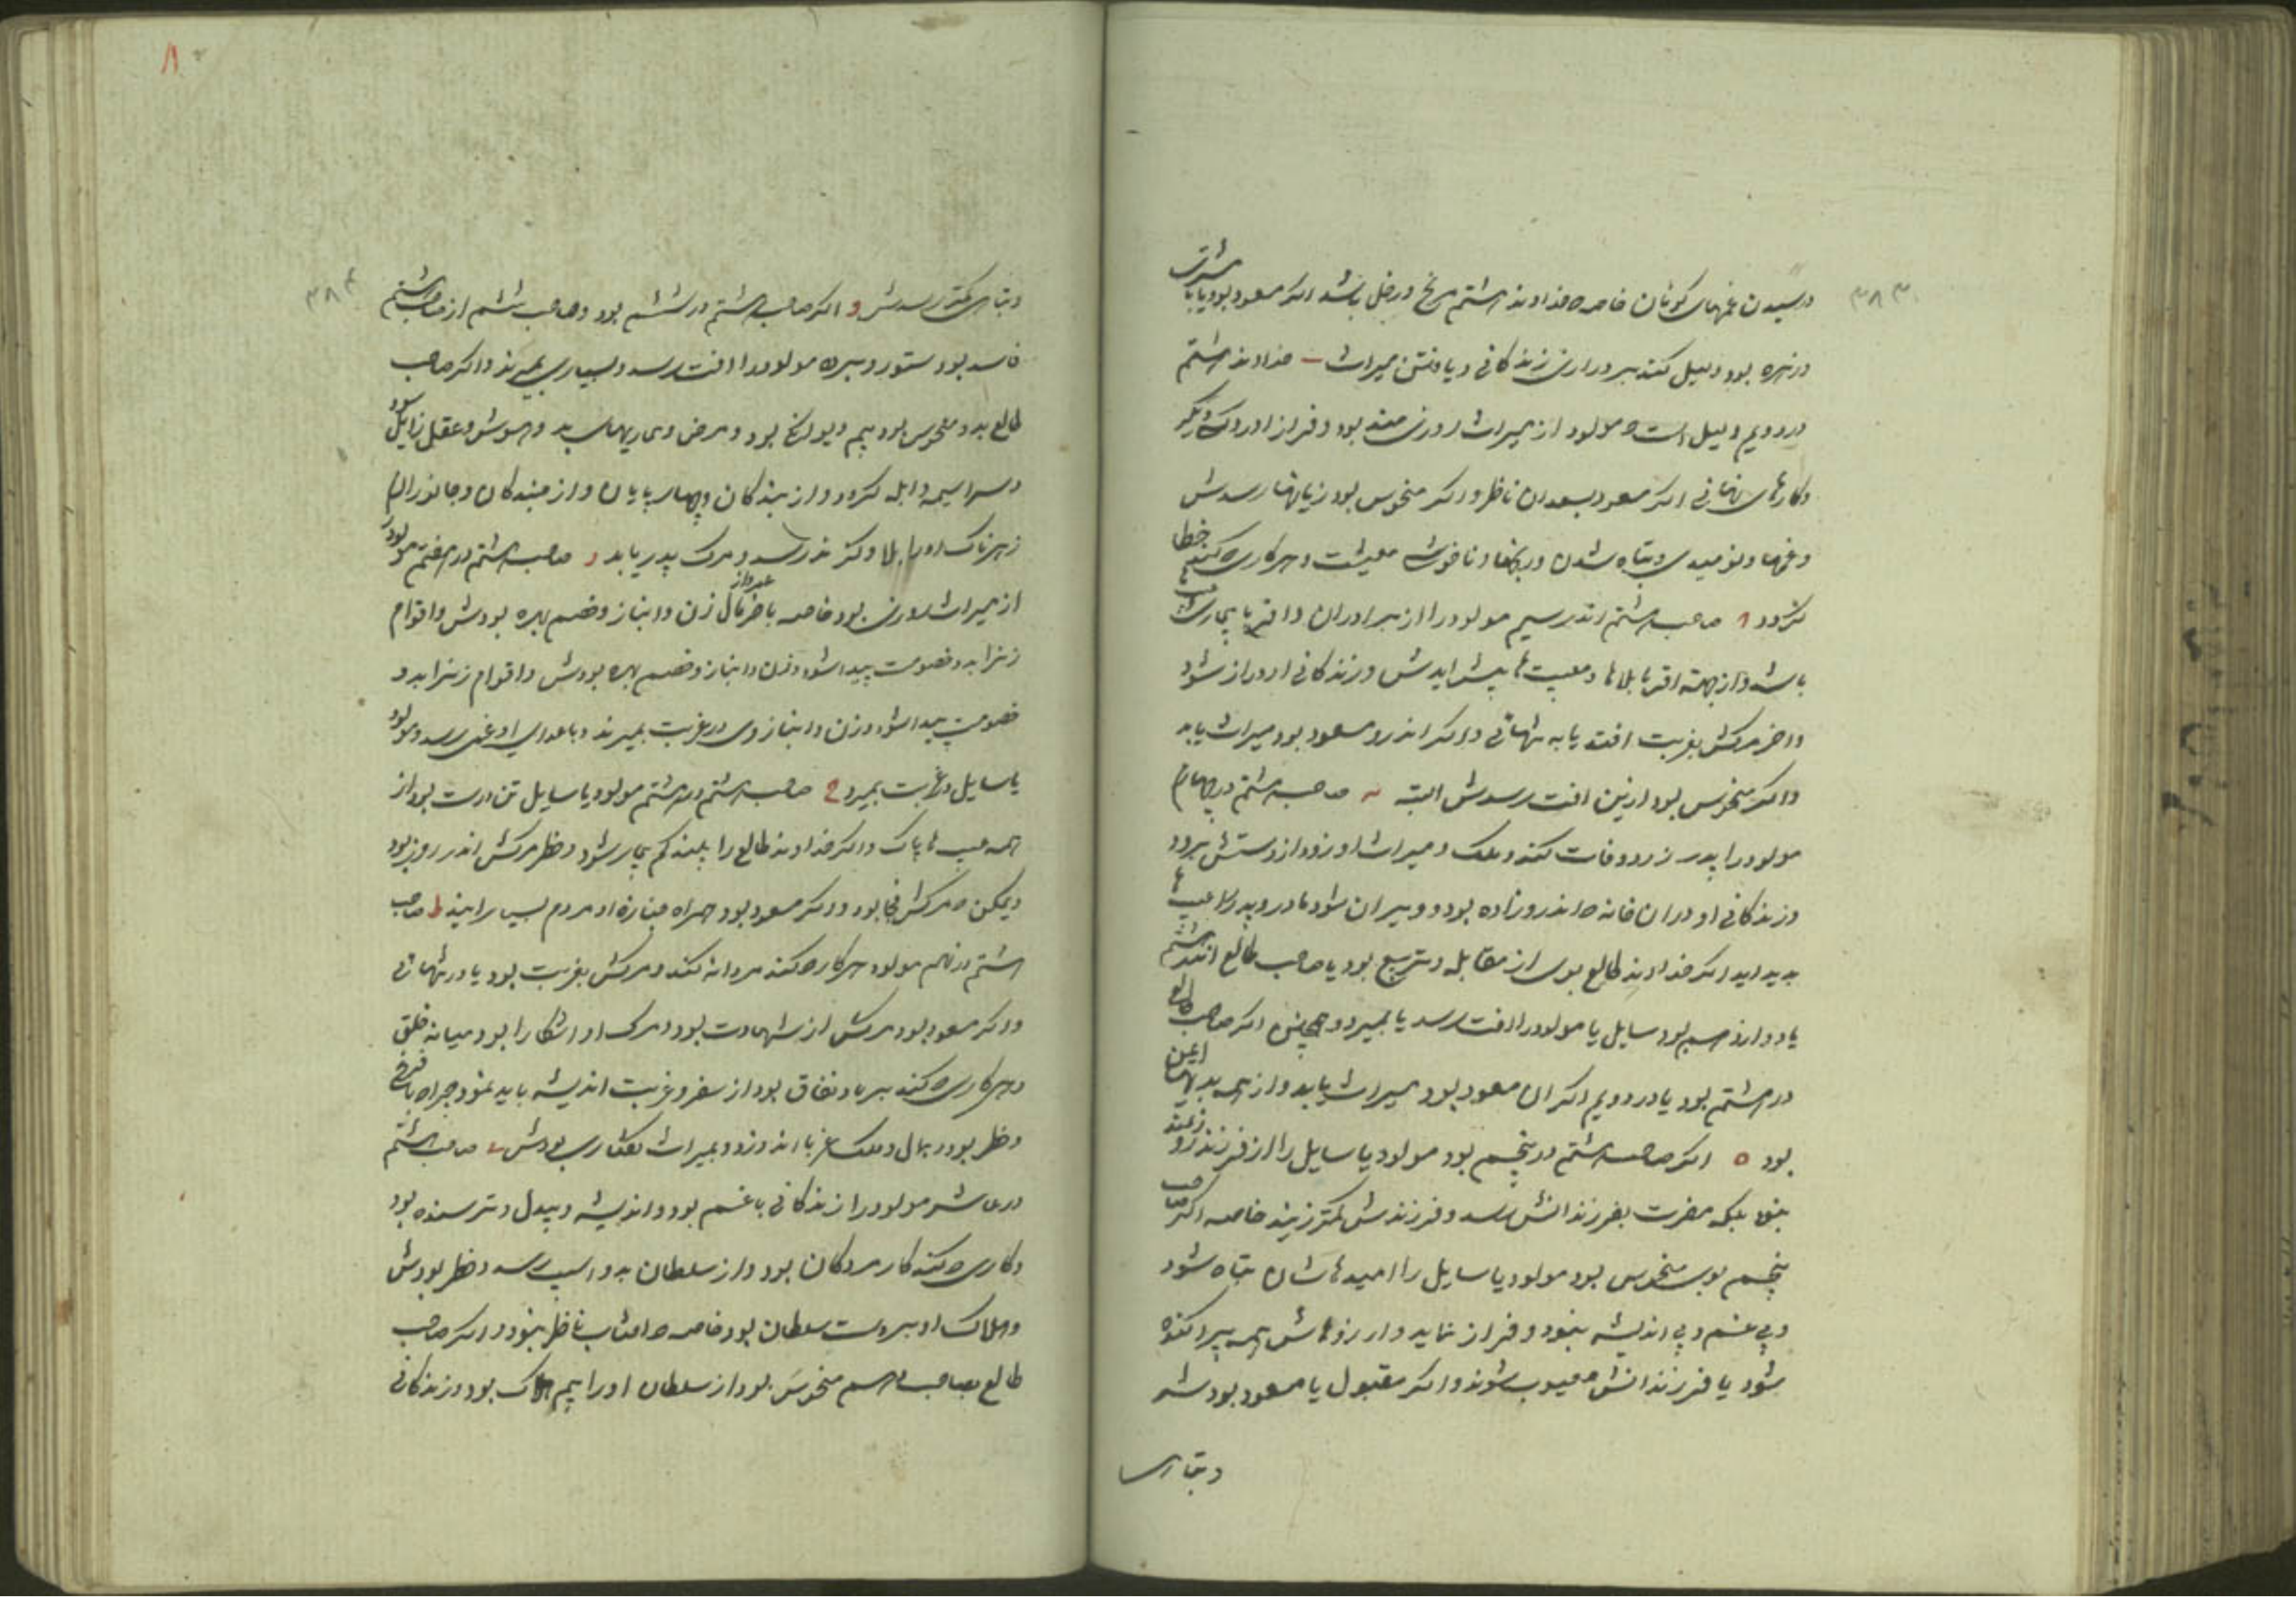 ۳۸۳
رسیدن غمهای کوناکون خاصه خداوند هشتم مریخ و زحل باشد اکر مسعود بود یا با مشتری
و زهره بود دلیل کند بر درازی زندکانی و یافتن میراث خداوند هشتم
در دویم دلیل است مولود از میراث روزی مند بود و فراز آورد
و کارهای نهانی اکر مسعود بسعدان ناظر و اکر منحوس بود زیانها رسدش
و غمها و نومیدی و تباه شدن و رنجها و ناخوشی معیشت و هر کاری که کند خطا
کردد صاحب هشتم اندر سیم مولود را از برادران و اقربا
باشد و از جهة اقربا بلاها و مصیبت ها پیش آیدش و زندکانی او دراز شود
و آخر مرکش بغربت افتد یا به تنهائی و اکر اندرو مسعود بود میراث یابد
و اکر منحوس بود ازین آفت رسدش البته صاحب هشتم در چهارم
مولود را پدر زود وفات کند و ملک و میراث او زود از دستش برود
و زندکانی او در ان خانه که اندرو زاده بود و ویران شود و مادر و پدر را عیب ها
پدید اید اکر خداوند طالع بوی از مقابله و تربیع بود یا صاحب طالع اندر هشتم
یا دوازدهم بود سایل یا مولود را آفت رسد یا بمیرد و همچنین اکر صاحب طالع
در هشتم بود یا در دویم اکر ان مسعود بود میراث یابد و از همه بدیها ایمن
بود ه اکر صاحب هشتم در پنجم بود مولود یا سایل را از فرزند
بلکه مضرت بفرزندانش رسد و فرزندش کمتر زیند خاصه اکر صاحب
پنجم بوی منحوس بود مولود یا سایل را امیدهاشان تباه شود
و بی غم و بی اندیشه نبود و فراز نماید و ارزوهاش همه پراکنده
شود یا فرزندانش معیوب شوند و اکر مقبول یا مسعود بود شر
و تباهی
۸
۳۸۴
و تباهی کمتر رسدش و اکر صاحب هشتم در ششم بود و صاحب ششم از صاحب هشتم
فاسد بود ستور و برده مولود را آفت رسد و بسیاری بمیرند و اکر صاحب
طالع بدو منحوس بود بیم دیوانکی بود و مرض و بماریهای بد و هوش و عقل زایل شود
و سراسیمه و ابله کردد و از بندکان و چهار پایان و از جنبدکان و جانوران
زهرناک او را بلا و کزند رسد و مرک پدر یابد ر صاحب هشتم در هفتم مولود
از میراث روزی بود خاصه باخر مال زن و انباز و خصم بهره بودش و اقوام
زن زاید و خصومت پیدا شود و زن و انباز و خصم بهره بودش و اقوام زن زاید و
خصومت پیدا شود و زن و انباز وی در غربت بمیرند و باعدای او غمی رسد و مولود
یا سایل در غربت بمیرد ح صاحب هشتم در هشتم مولود یا سایل تن درست بود از
همه عیب ها پاک و اکر خداوند طالع را بیند کم بیمار شود و خطر مرکش اندر روز بود
و ممکن که مرکش فجا بود و اکر مسعود بود همراه جنازه او مردم بسیار ایند ط صاحب
هشتم در نهم مولود هر کار که کند مردانه کند و مرکش بغربت بود یا در تنهائی
و اکر مسعود بود مرکش از شهادت بود و مرک او آشکارا بود میانه خلق
و هر کاری که کند بریا و نفاق بود از سفر و غربت اندیشه باید نمود
و خطر بود و بمال و ملک غربا اندوزد و بمیراث کفتاری بودش ی صاحب هشتم
در عاشر مولود را زندکانی با غم بود و اندیشه و بیدل و ترسنده بود
و کاری که کند کار مردکان بود و از سلطان بدو آسیب رسد و خطر بودش
و هلاک او بر دست سلطان بود خاصه که افتاب ناظر نبود و اکر صاحب
طالع بصاحب دهم منحوس بود از سلطان او را بیم هلاک بود و زندکانی